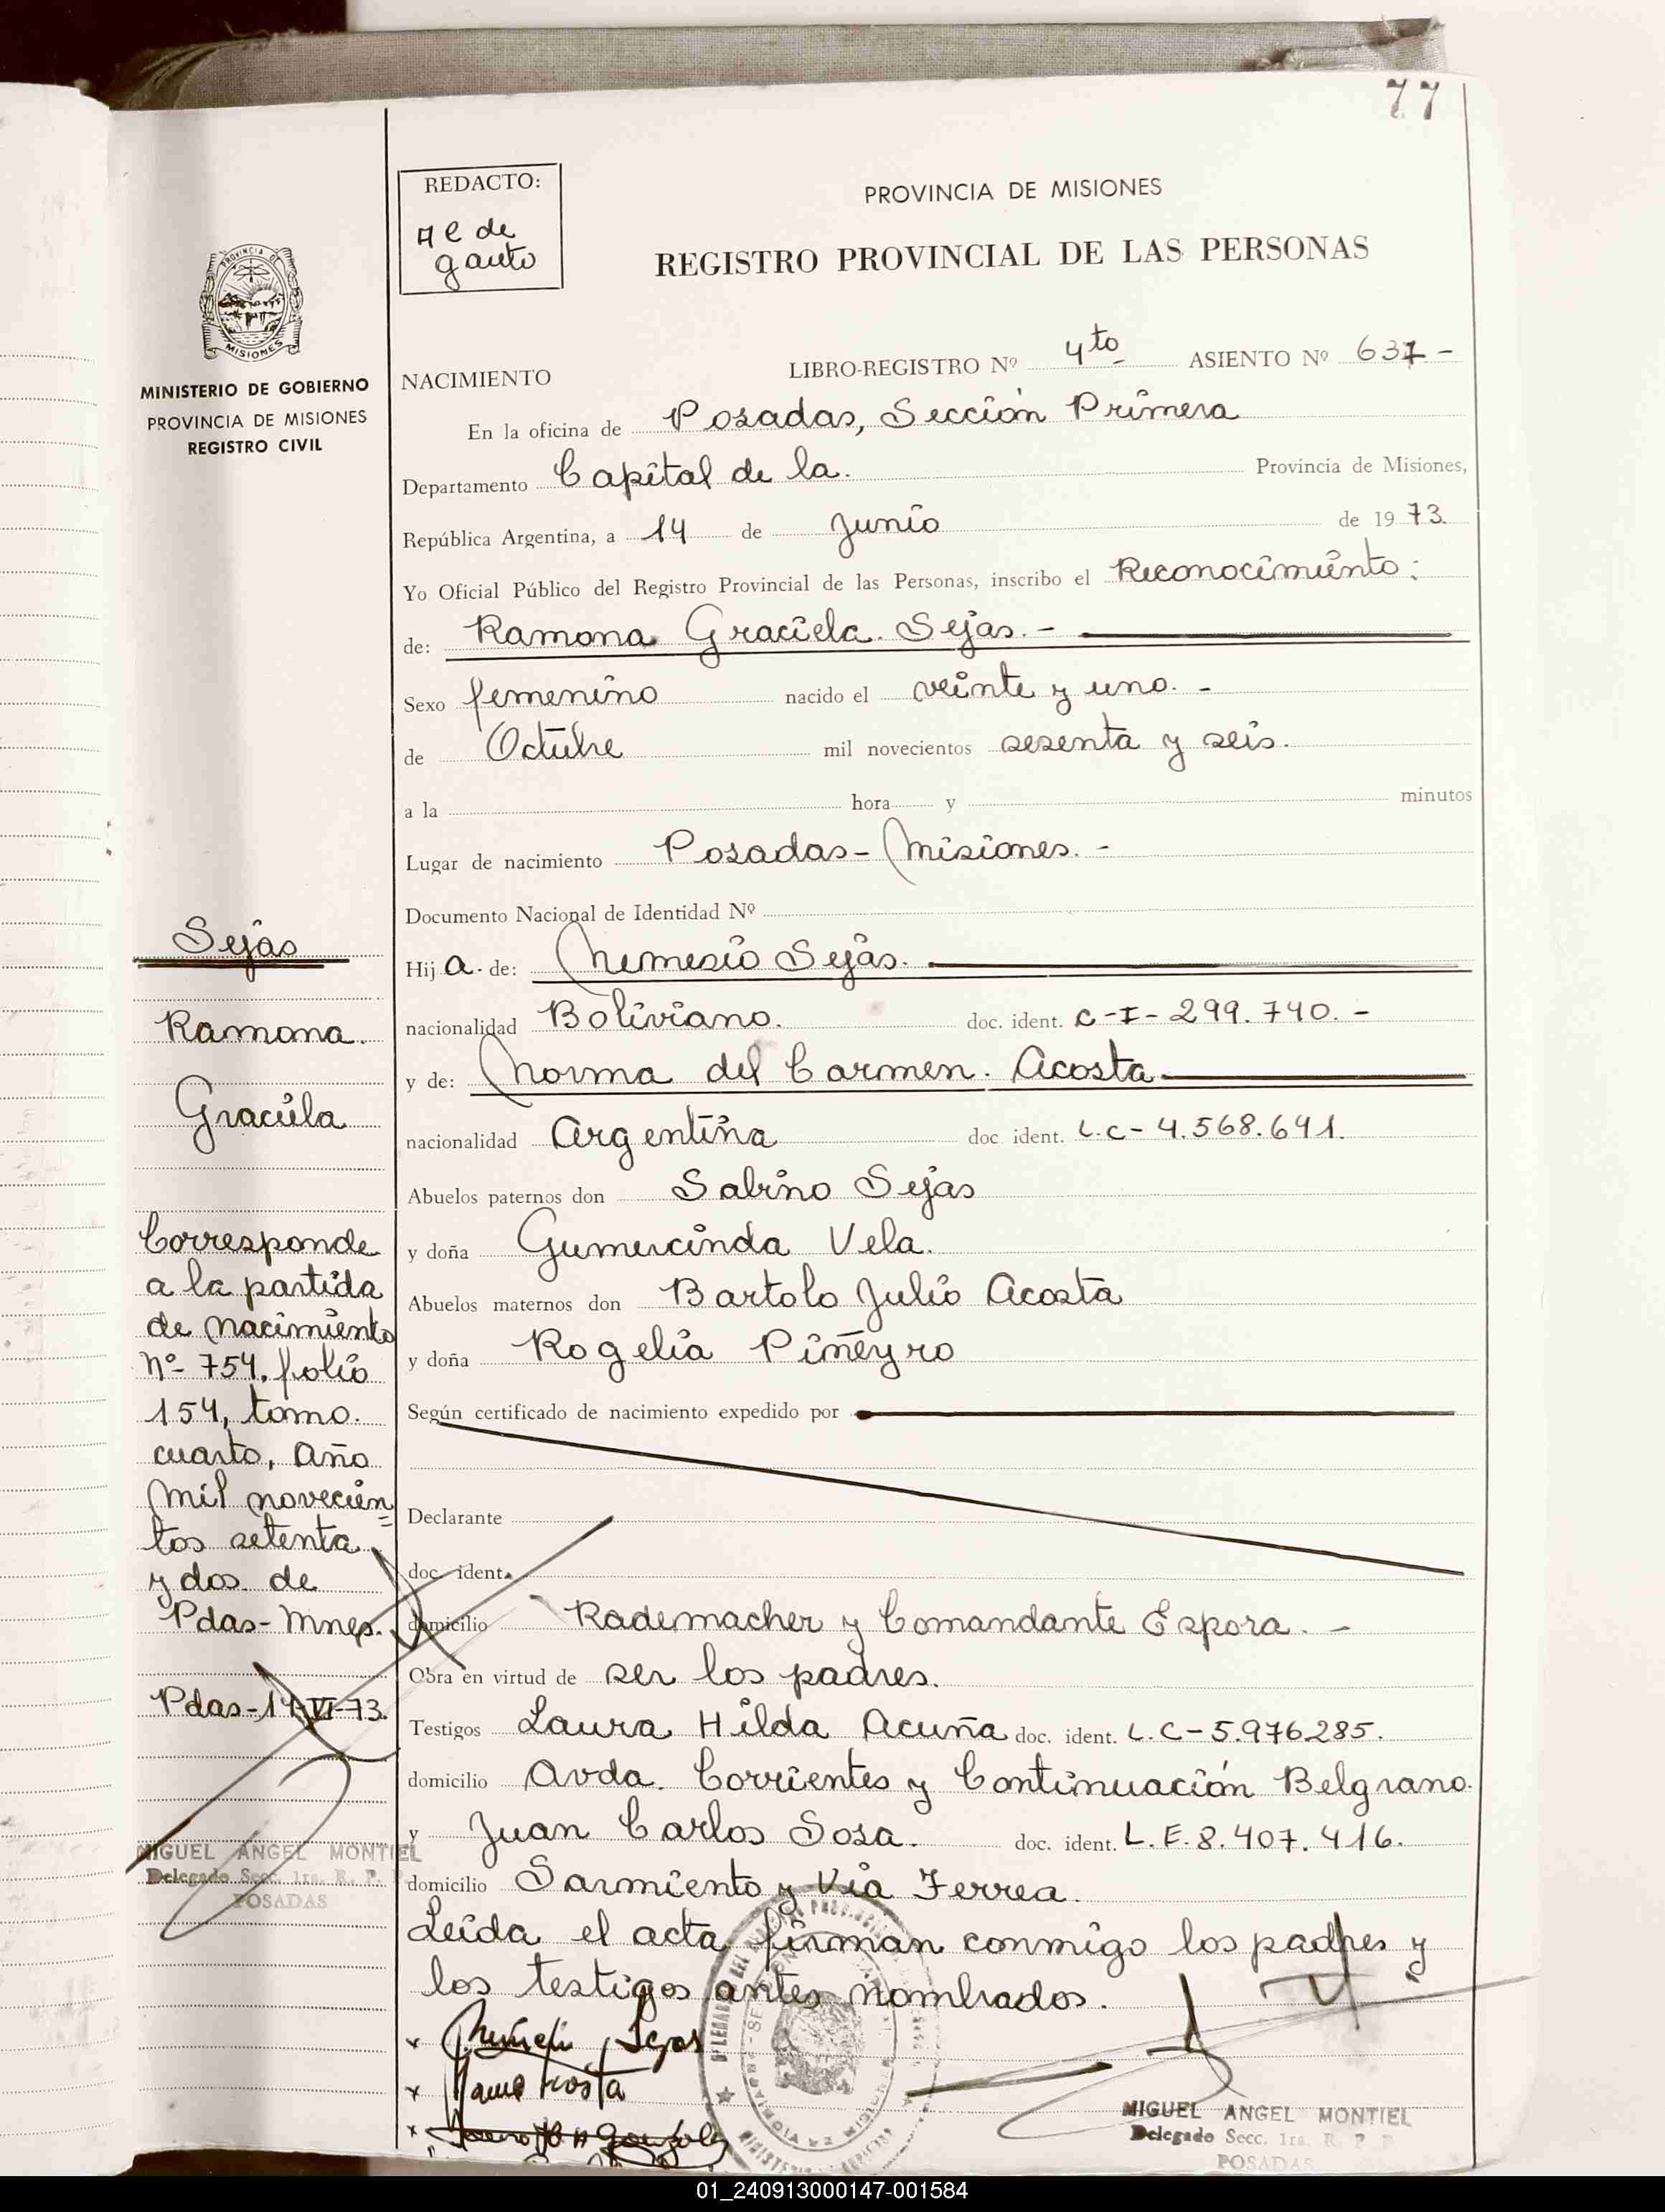 77
REDACTO:
PROVINCIA DE MISIONES
gauto
REGISTRO PROVINCIAL DE LAS PERSONAS
PROVINCIA DE
MISIONES
MINISTERIO DE GOBIERNO
PROVINCIA DE MISIONES
REGISTRO CIVIL
NACIMIENTO LIBRO-REGISTRO Nº 4to ASIENTO Nº 637 -
En la oficina de Posadas, Sección Primera
Departamento Capital de la. Provincia de Misiones,
República Argentina, a 14 de Junio de 1973.
Yo Oficial Público del Registro Provincial de las Personas, inscribo el Reconocimiento:
de: Ramona Graciela Sejas. -
Sexo femenino nacido el veinte y uno. -
de Octubre mil novecientos sesenta y seis.
a la hora y minutos
Lugar de nacimiento Posadas - Misiones. -
Documento Nacional de Identidad Nº
Hija de: Nemesio Sejas.
nacionalidad Boliviano. doc. ident. C-I- 299.740. -
y de: Norma del Carmen Acosta
nacionalidad Argentina doc. ident. L.C- 4.568.641.
Abuelos paternos don Sabino Sejas
y doña Gumercinda Vela.
Abuelos maternos don Bartolo Julio Acosta
y doña Rogelia Piñeyro
Según certificado de nacimiento expedido por
Declarante
doc. ident.
domicilio Rademacher y Comandante Espora. -
Obra en virtud de ser los padres.
Testigos Laura Hilda Acuña doc. ident. L.C- 5.976285.
domicilio Avda. Corrientes y Continuación Belgrano.
y Juan Carlos Sosa. doc. ident. L.E. 8.407.416.
domicilio Sarmiento y Via Ferrea.
Leida el acta firman conmigo los padres y
los testigos antes nombrados.
Sejas
Ramona
Graciela
Corresponde
a la partida
de nacimiento
Nº- 754, folio
154, tomo
cuarto, año
mil novecien=
tos setenta
y dos de
Pdas- Mnes.
Pdas- 14-VI-73.
MIGUEL ANGEL MONTIEL
Delegado Secc. 1ra. R. P. P.
POSADAS
MIGUEL ANGEL MONTIEL
Delegado Secc. 1ra. R. P. P.
POSADAS
01_240913000147-001584